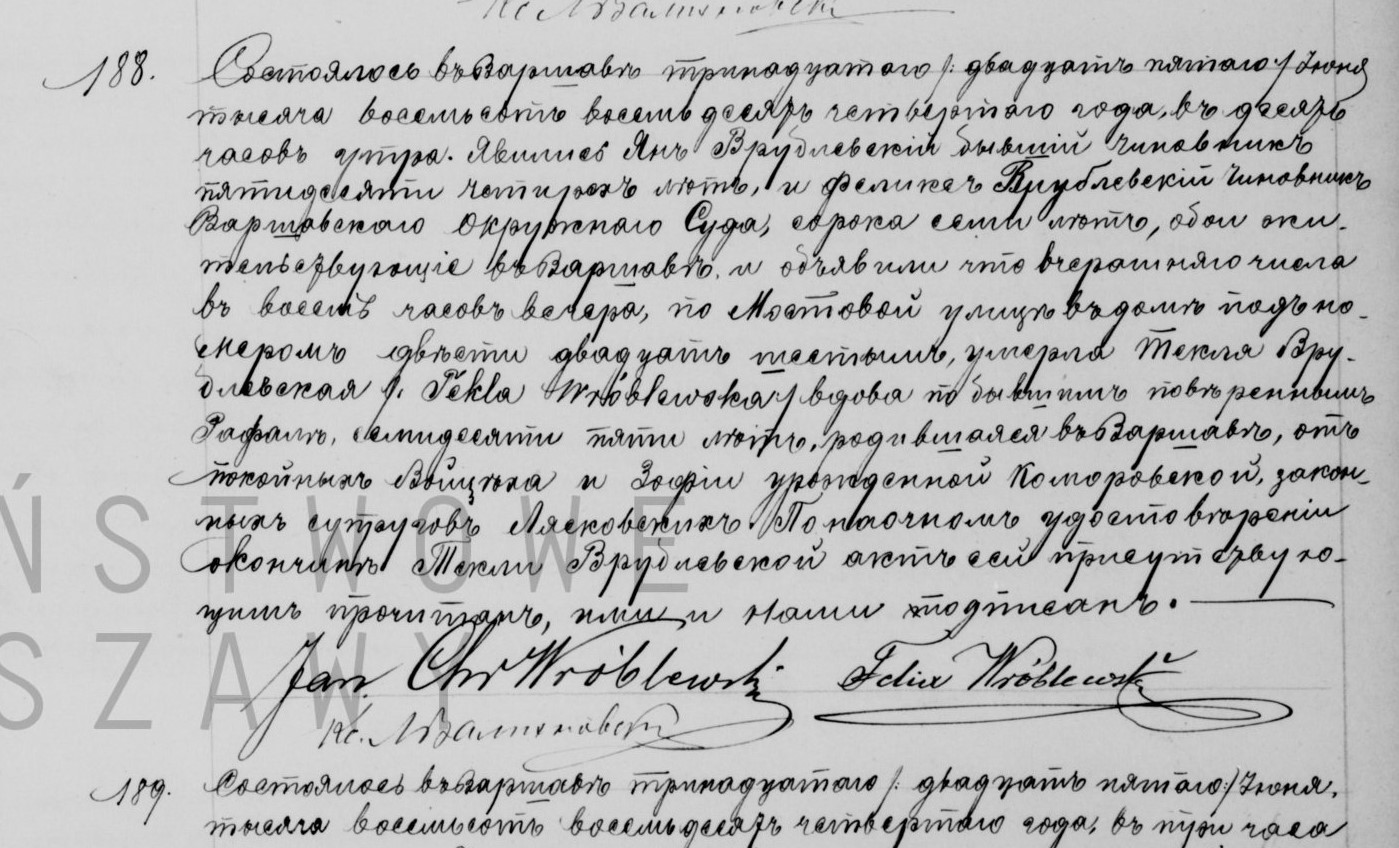 Кс. А Валиновскі
188. Состоялось въ Варшавѣ тринадцатаго /: двадцать пятаго :/ Іюня
тысяча восемьсотъ восемьдесятъ четвертаго года, въ десять
часовъ утра. Явились Янъ Врублевскій бывшій чиновникъ
пятидесяти четырехъ лѣтъ, и Феликсъ Врублевскій чиновникъ
Варшавскаго Окружнаго Суда, сорока семи лѣтъ, обои жи-
тельствующіе въ Варшавѣ, и объявили что вчерашняго числа
въ восемь часовъ вечера, по Мостовой улицѣ въ домѣ подъ но-
меромъ двѣсти двадцать шестымъ, умерла Текля Вру-
блевская /: Tekla Wróblewska :/ вдова по бывшимъ повѣреннымъ
Рафалѣ, семидесяти пяти лѣтъ, родившаяся въ Варшавѣ, отъ
покойныхъ Войцѣха и Зофіи урожденной Коморовской, закон-
ныхъ супруговъ Лясковскихъ. По наочномъ удостовѣреніи
о кончинѣ Текли Врублевской актъ сей присутствую-
щимъ прочитанъ, ими и нами подписанъ.
Jan Chr Wróblewski Felix Wróblewski
Кс.
189. Состоялось въ Варшавѣ тринадцатаго /: двадцать пятаго :/ Іюня,
тысяча восемьсотъ восемьдесятъ четвертаго года, въ три часа
ŃSTWOWE
SZAWY